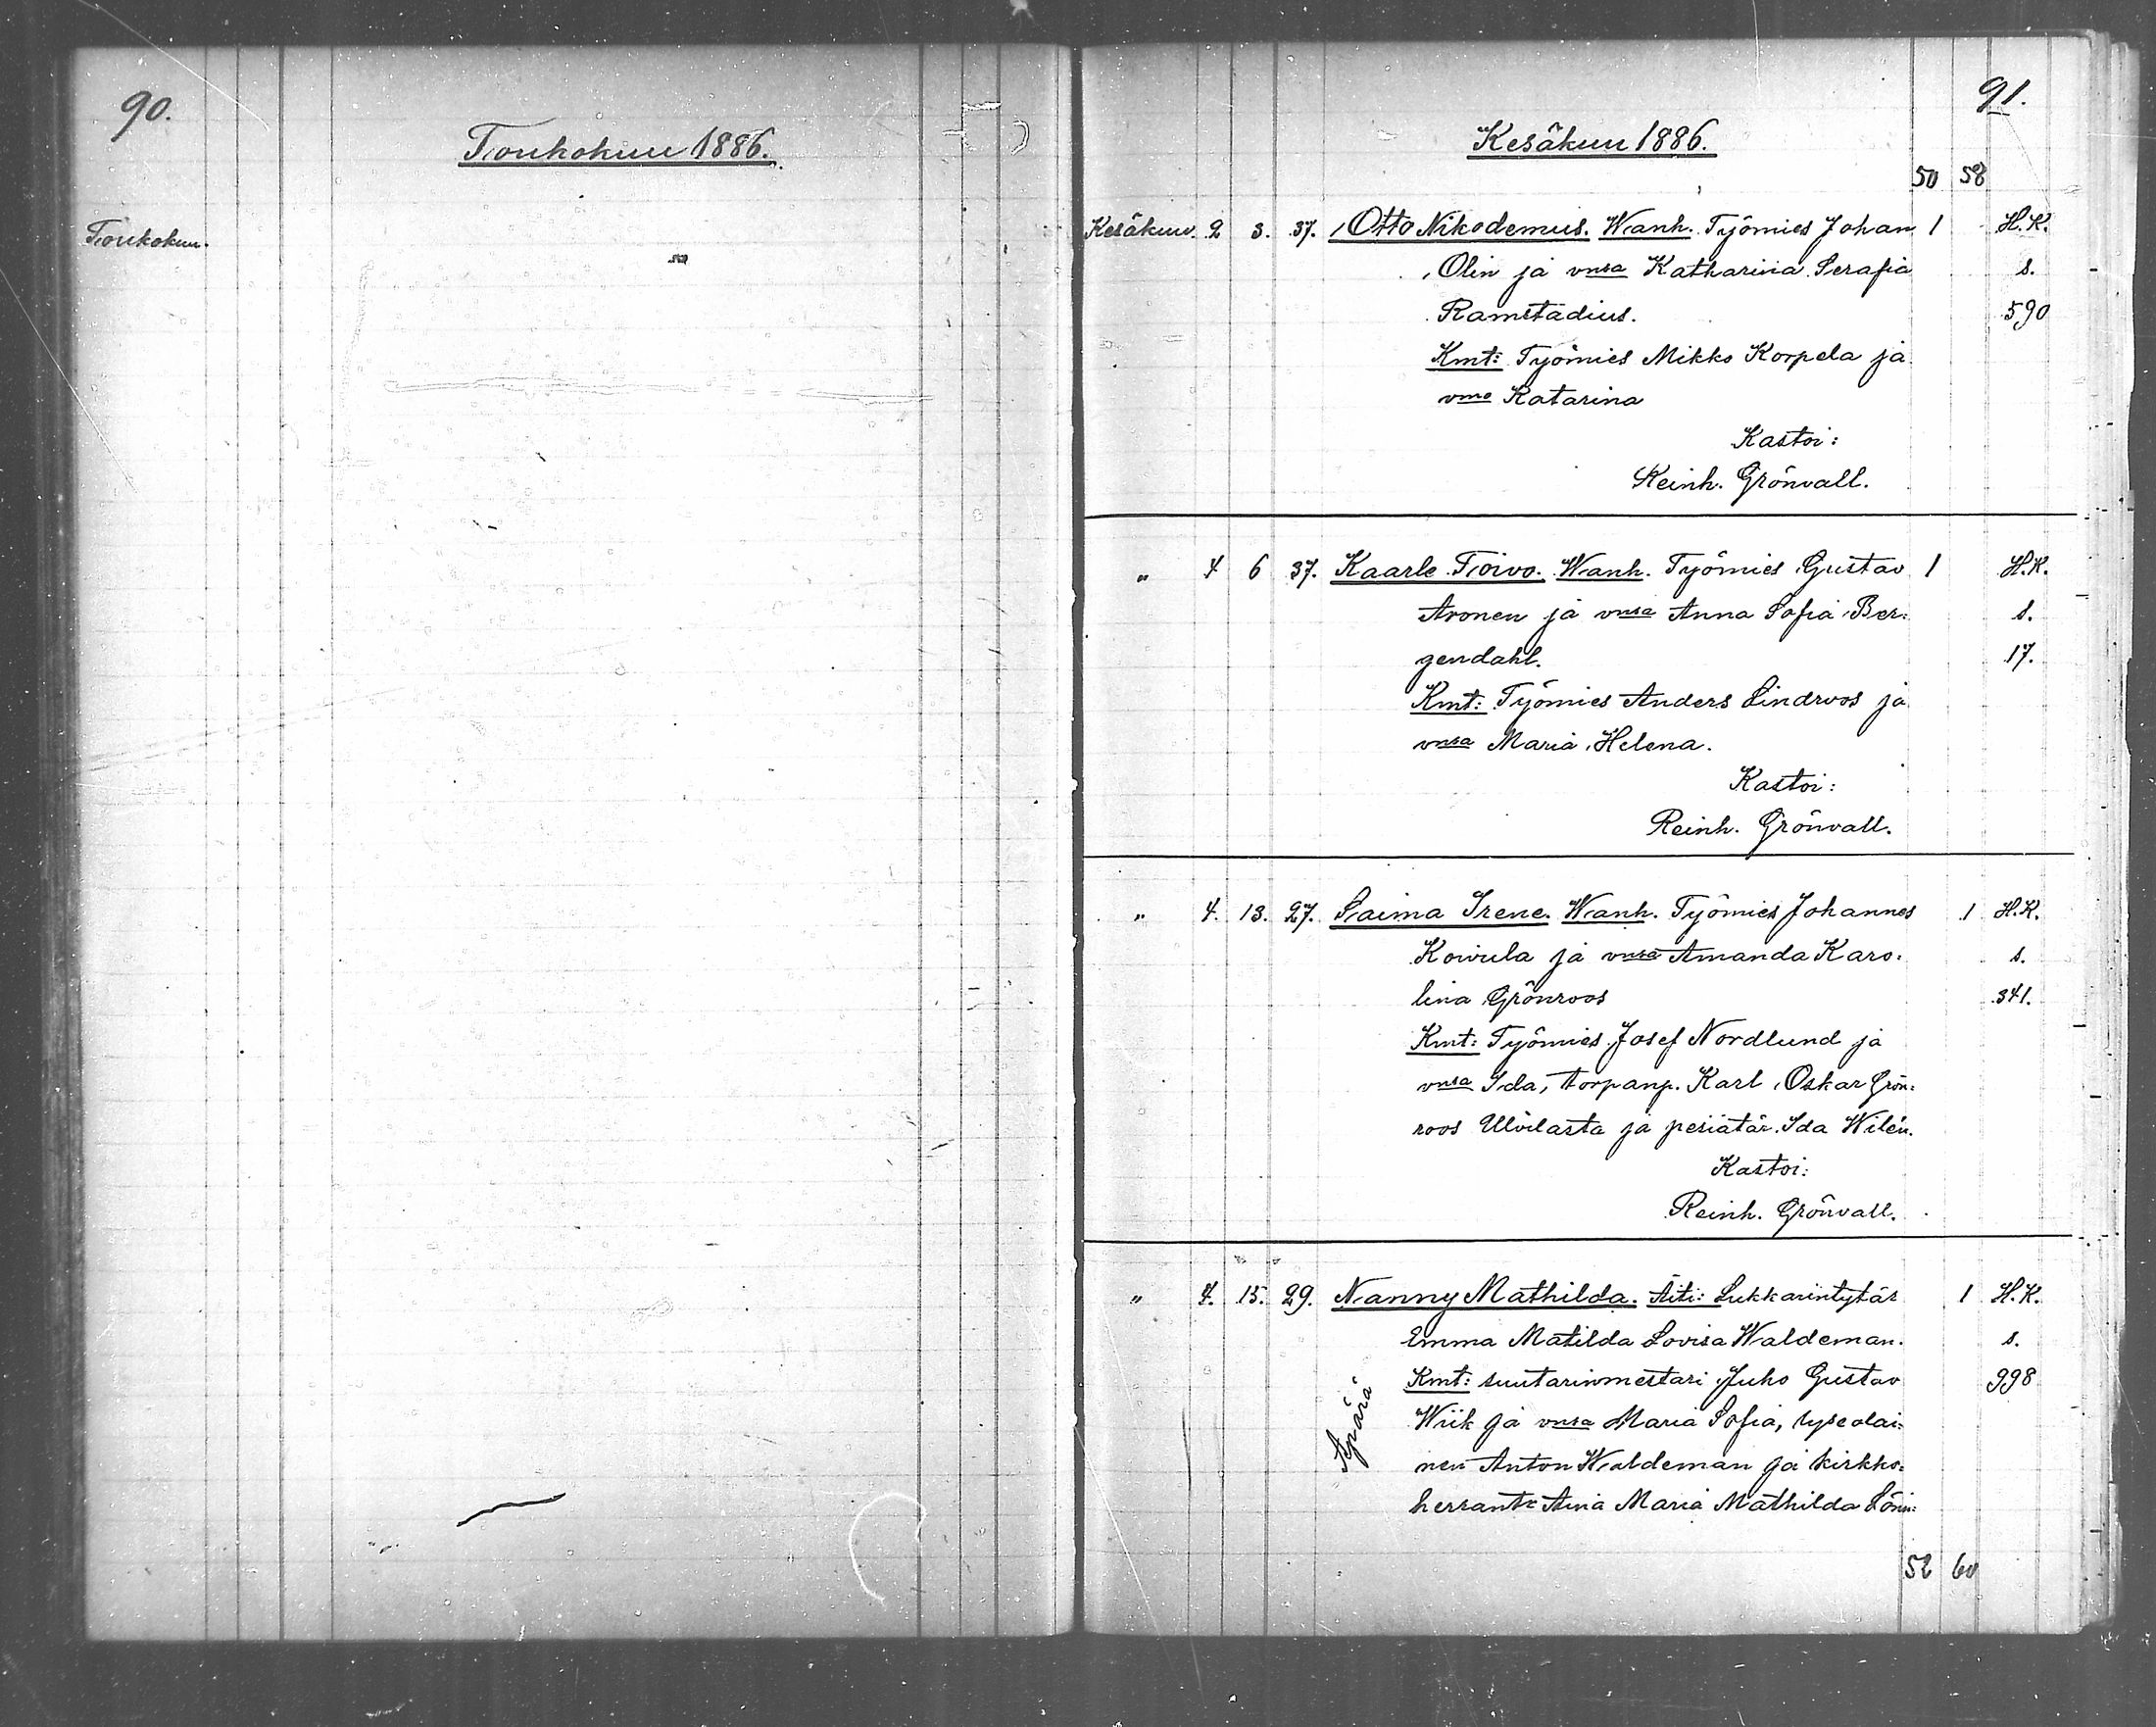 90.
Toukokuu 1886.
Toukokuu.
91.
Kesäkuu 1886.
50 58
Kesäkuu. 2 3. 37. Otto Nikodemus. Wanh. Työmies Johan 1 H.K.
Olin ja vmsa Katharina Serafia s.
Ramstadius. 590
Kmt: Työmies Mikko Korpela ja
vmo Katarina
Kastoi:
Reinh. Grönvall.
" 4 6 37. Kaarle Toivo. Wanh. Työmies Gustav 1 H.K.
Aronen ja vmsa Anna Sofia Ber- s.
gendahl. 17.
Kmt: Työmies Anders Lindroos ja
vmsa Maria Helena.
Kastoi:
Reinh. Grönvall.
" 4. 13. 27. Saima Irene. Wanh. Työmies Johannes 1 H.K.
Koivula ja vmsa Amanda Karo- s.
lina Grönroos 341.
Kmt: Työmies Josef Nordlund ja
vmsa Ida, torpanp. Karl Oskar Grön-
roos Ulvilasta ja pesiätär Ida Wilén.
Kastoi:
Reinh. Grönvall.
" 4. 15. 29. Nanny Mathilda. Äiti: Lukkarintytär 1 H.K.
Emma Matilda Lovisa Waldeman. s.
Kmt: suutarinmestari Juho Gustav 998
Wiik ja vmsa Maria Sofia, lyseolai-
Äpärä
nen Anton Waldeman ja kirkko-
herrantr Aina Maria Mathilda Lönn-
52 60